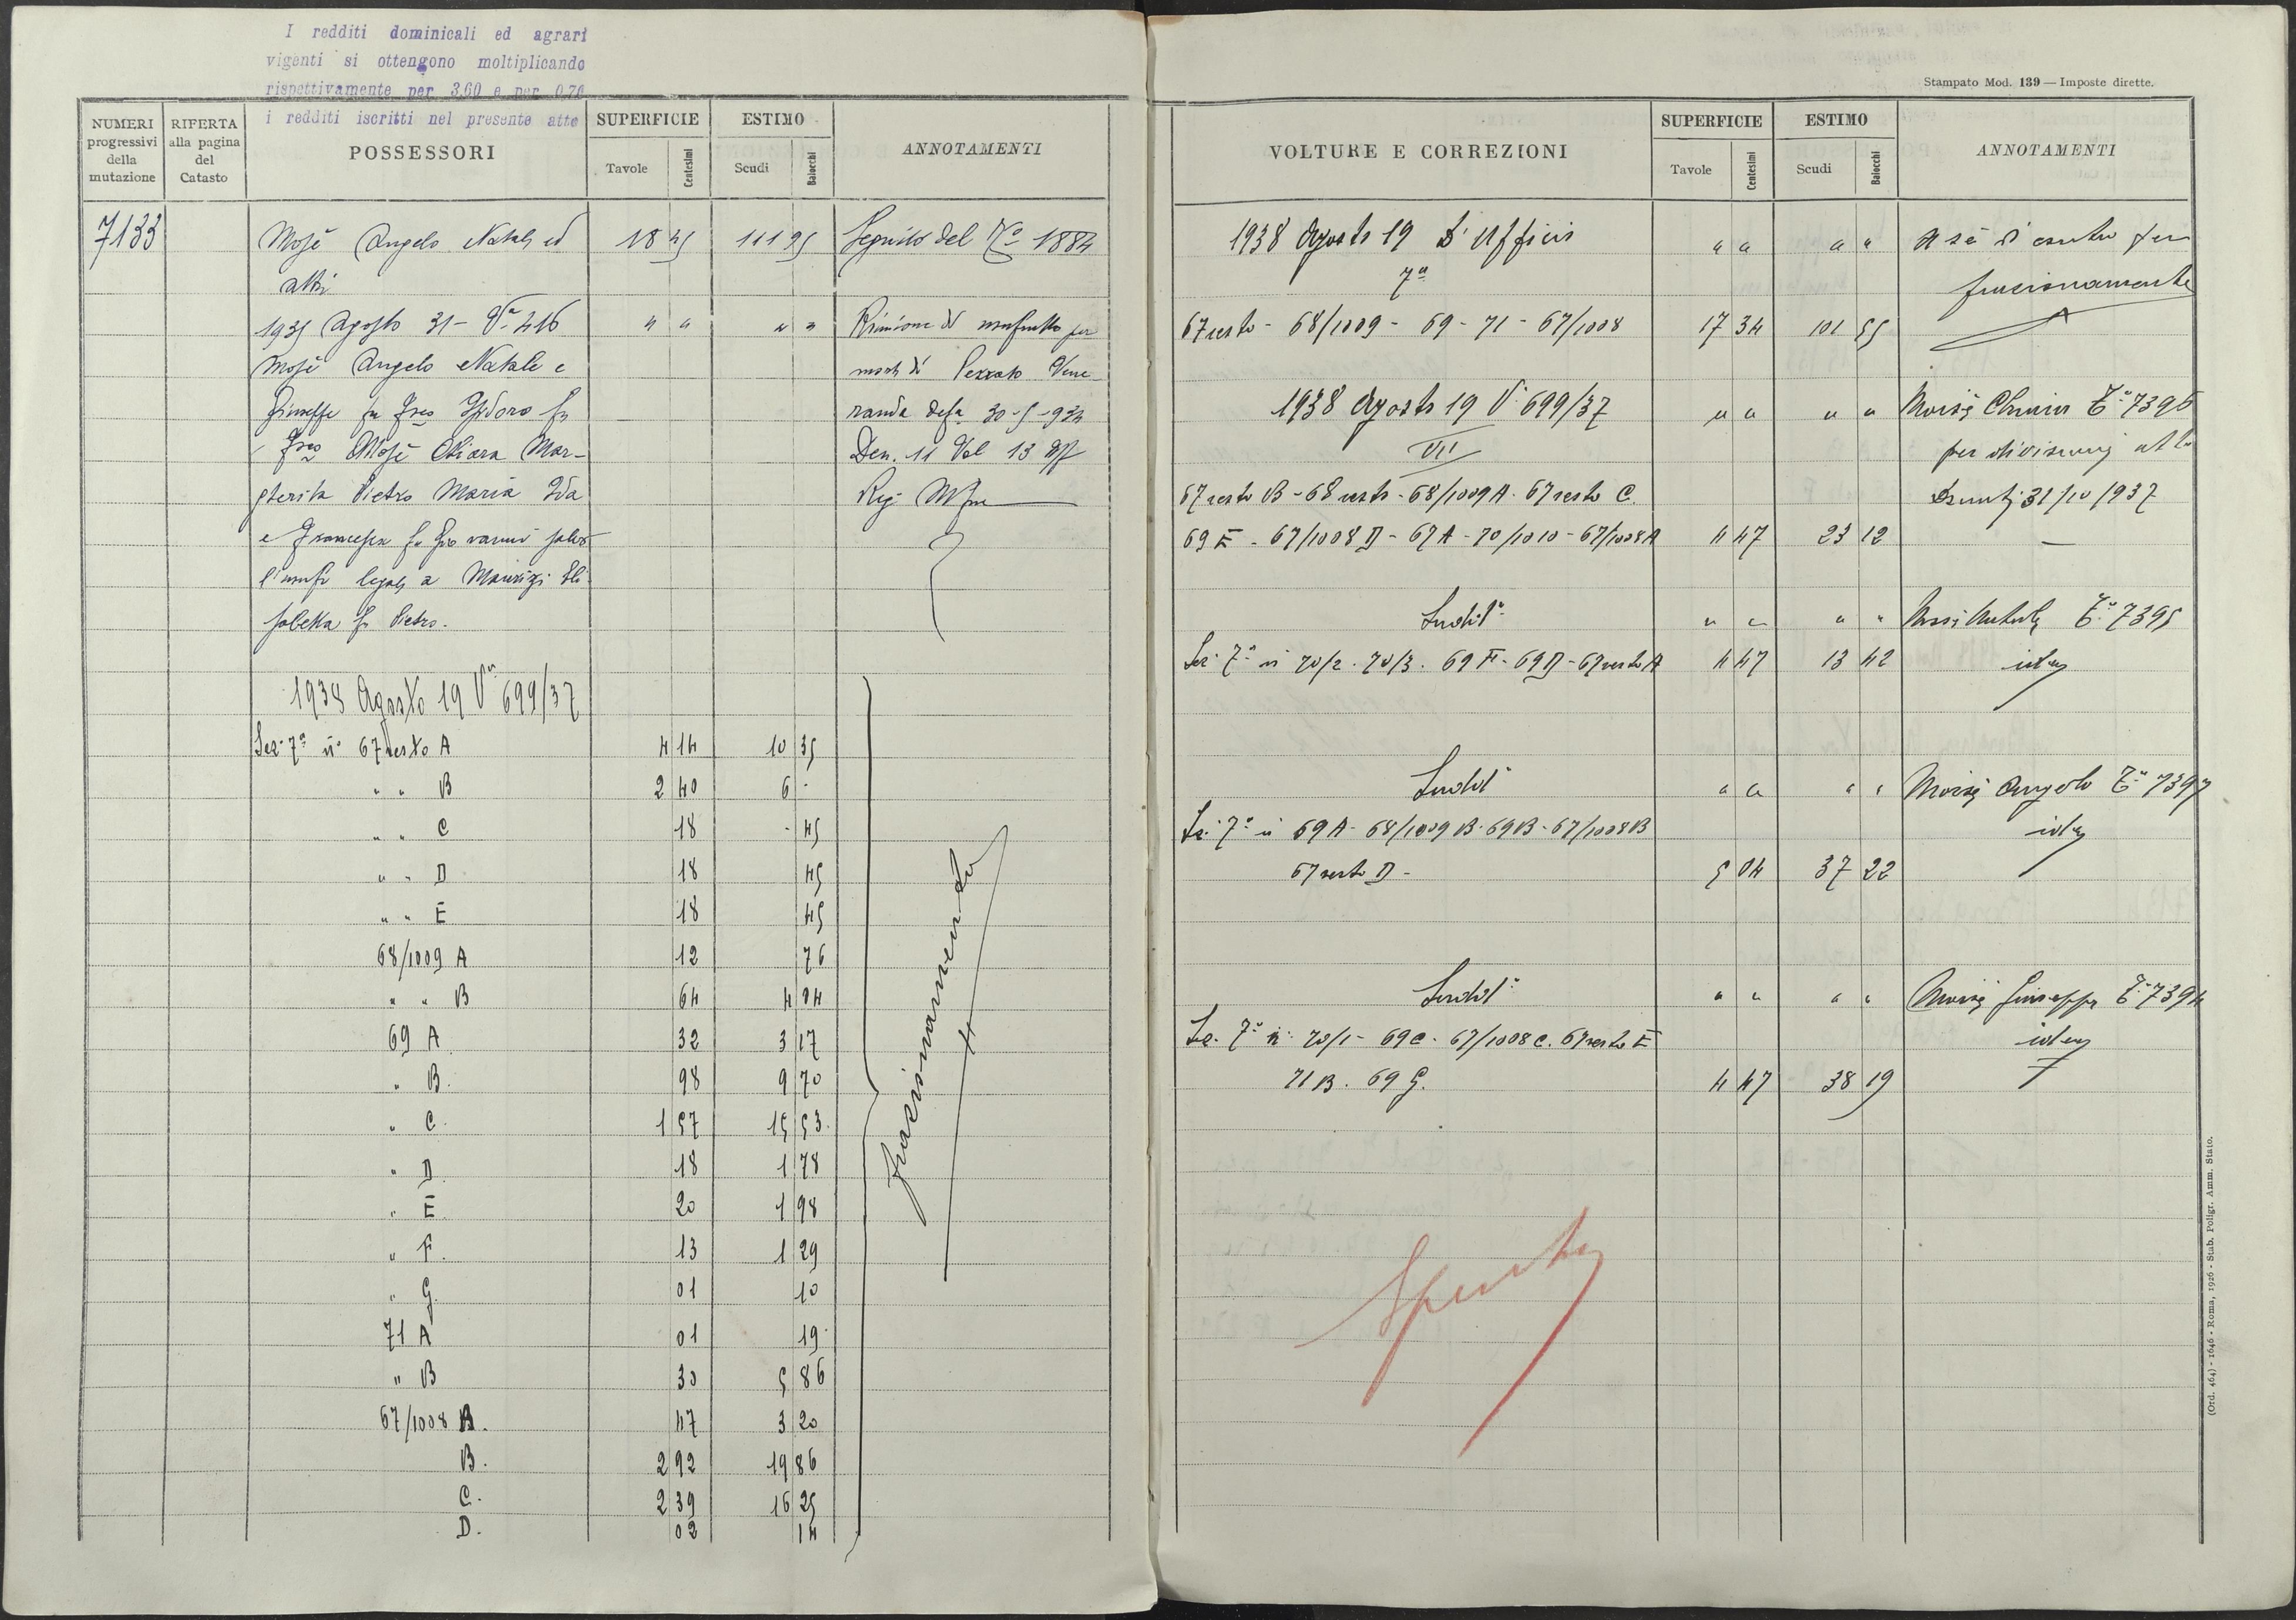 I redditi dominicali ed agrari
vigenti si ottengono moltiplicando
rispettivamente per 3,60 e per 0,70
i redditi iscritti nel presente atto
NUMERI progressivi della mutazione
RIFERTA alla pagina del Catasto
POSSESSORI
SUPERFICIE
Tavole Centesimi
ESTIMO
Scudi Baiocchi
ANNOTAMENTI
7133 Mosè Angelo Natale ed 18 45 111 95 Seguito del N.o 1884
altri
1935 Agosto 31 - Va 416 " " " " Riunione di usufrutto per
Mosè Angelo Natale e morte di Pezzato Vene
Giuseppe fu Fresco Isidoro fu randa defa 30-5-934
Mosè Chiara Mar- Den. 11 Vol 13
gherita Pietro Maria Ida Reg.
e Francesca fu Gio
l'usufr legale a Eli
sabetta fu Pietro.
1938 Agosto 19 Va 699/37
Sez. 7a n. 67 resto A 4 14 10 35
" " B 2 40 6 -
" " C 18 - 45
" " D 18 45
" " E 18 45
68/1009 A 12 76
" " B 64 4 04
69 A 32 3 17
" B. 98 9 70
" C. 1 57 15 53
" D. 18 1 78
" E. 20 1 98
" F. 13 1 29
" G. 01 10
71 A 01 19
" B 30 5 86
67/1008 A. 47 3 20
B. 2 92 19 86
C. 2 39 16 25
D. 02 14
frazionamento
Stampato Mod. 139 — Imposte dirette.
VOLTURE E CORREZIONI
SUPERFICIE
Tavole Centesimi
ESTIMO
Scudi Baiocchi
ANNOTAMENTI
1938 Agosto 19 D'Ufficio " " " " A sè per
7a frazionamento
67 resto - 68/1009 - 69 - 71 - 67/1008 17 34 101 55
1938 Agosto 19 V. 699/37 " " " " Moisè Chiara 7396
VII per divisione atto
67 resto B - 68 resto - 68/1009 A - 67 resto C. 31/10/937
69 E - 67/1008 D - 67 A - 70/1010 - 67/1008 A 4 47 23 12 —
Suddo " " " " Mosè Natale 7395
Sez. 7a n 70/2 - 70/3 - 69 F - 69 D - 67 resto A 4 47 13 42 idem
Suddo " " " " Moisè Angelo 7397
Sez. 7a n 69 A - 68/1009 B - 69 B - 67/1008 B idem
67 resto D - 5 04 37 22
Suddo " " " " Moisè Giuseppe 7394
Sez. 7a n. 70/1 - 69 C - 67/1008 C. 67 resto E idem
71 B. 69 G. 4 47 38 19
Spenta
(Ord. 464) - 1646 - Roma, 1926 - Stab. Poligr. Amm. Stato.